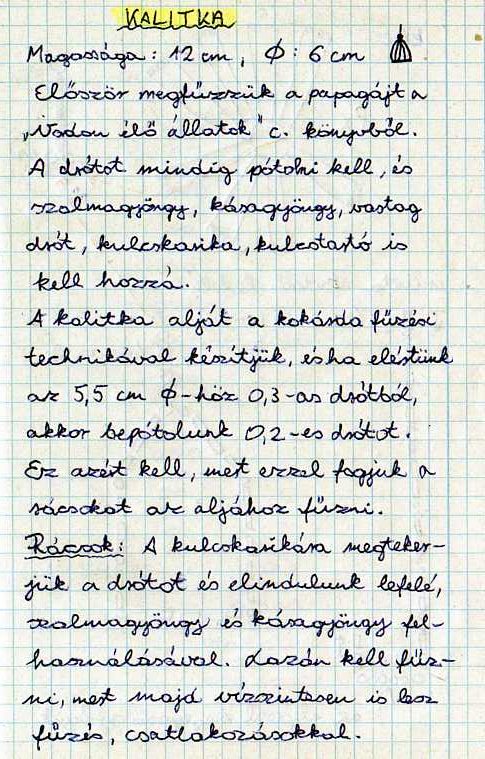 KALITKA
Magassága: 12 cm, ϕ: 6 cm
Először megfűzzük a papagájt a
„Vadon élő állatok” c. könyvből.
A drótot mindig pótolni kell, és
szalmagyöngy, kásagyöngy, vastag
drót, kulcskarika, kulcstartó is
kell hozzá.
A kalitka alját a kokárda fűzési
technikával készítjük, és ha elértünk
az 5,5 cm ϕ-höz 0,3-as drótból,
akkor bepótolunk 0,2-es drótot.
Ez azért kell, mert ezzel fogjuk a
rácsokat az aljához fűzni.
Rácsok: A kulcskarikára megteker-
jük a drótot és elindulunk lefelé,
szalmagyöngy és kásagyöngy fel-
használásával. Lazán kell fűz-
ni, mert majd vízszintesen is lesz
fűzés, csatlakozásokkal.